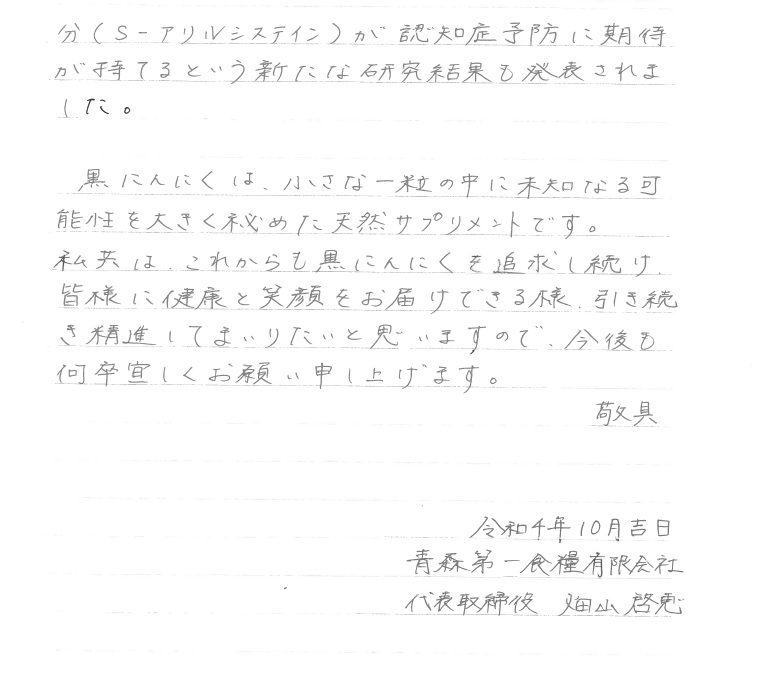 分(S-アリルシステイン)が認知症予防に期待
が持てるという新たな研究結果も発表されま
した。
黒にんにくは、小さな一粒の中に未知なる可
能性を大きく秘めた天然サプリメントです。
私共は、これからも黒にんにくを追求し続け、
皆様に健康と笑顔をお届けできる様、引き続
き精進してまいりたいと思いますので、今後も
何卒宜しくお願い申し上げます。
敬具
令和4年10月吉日
青森第一食糧有限会社
代表取締役 畑山啓